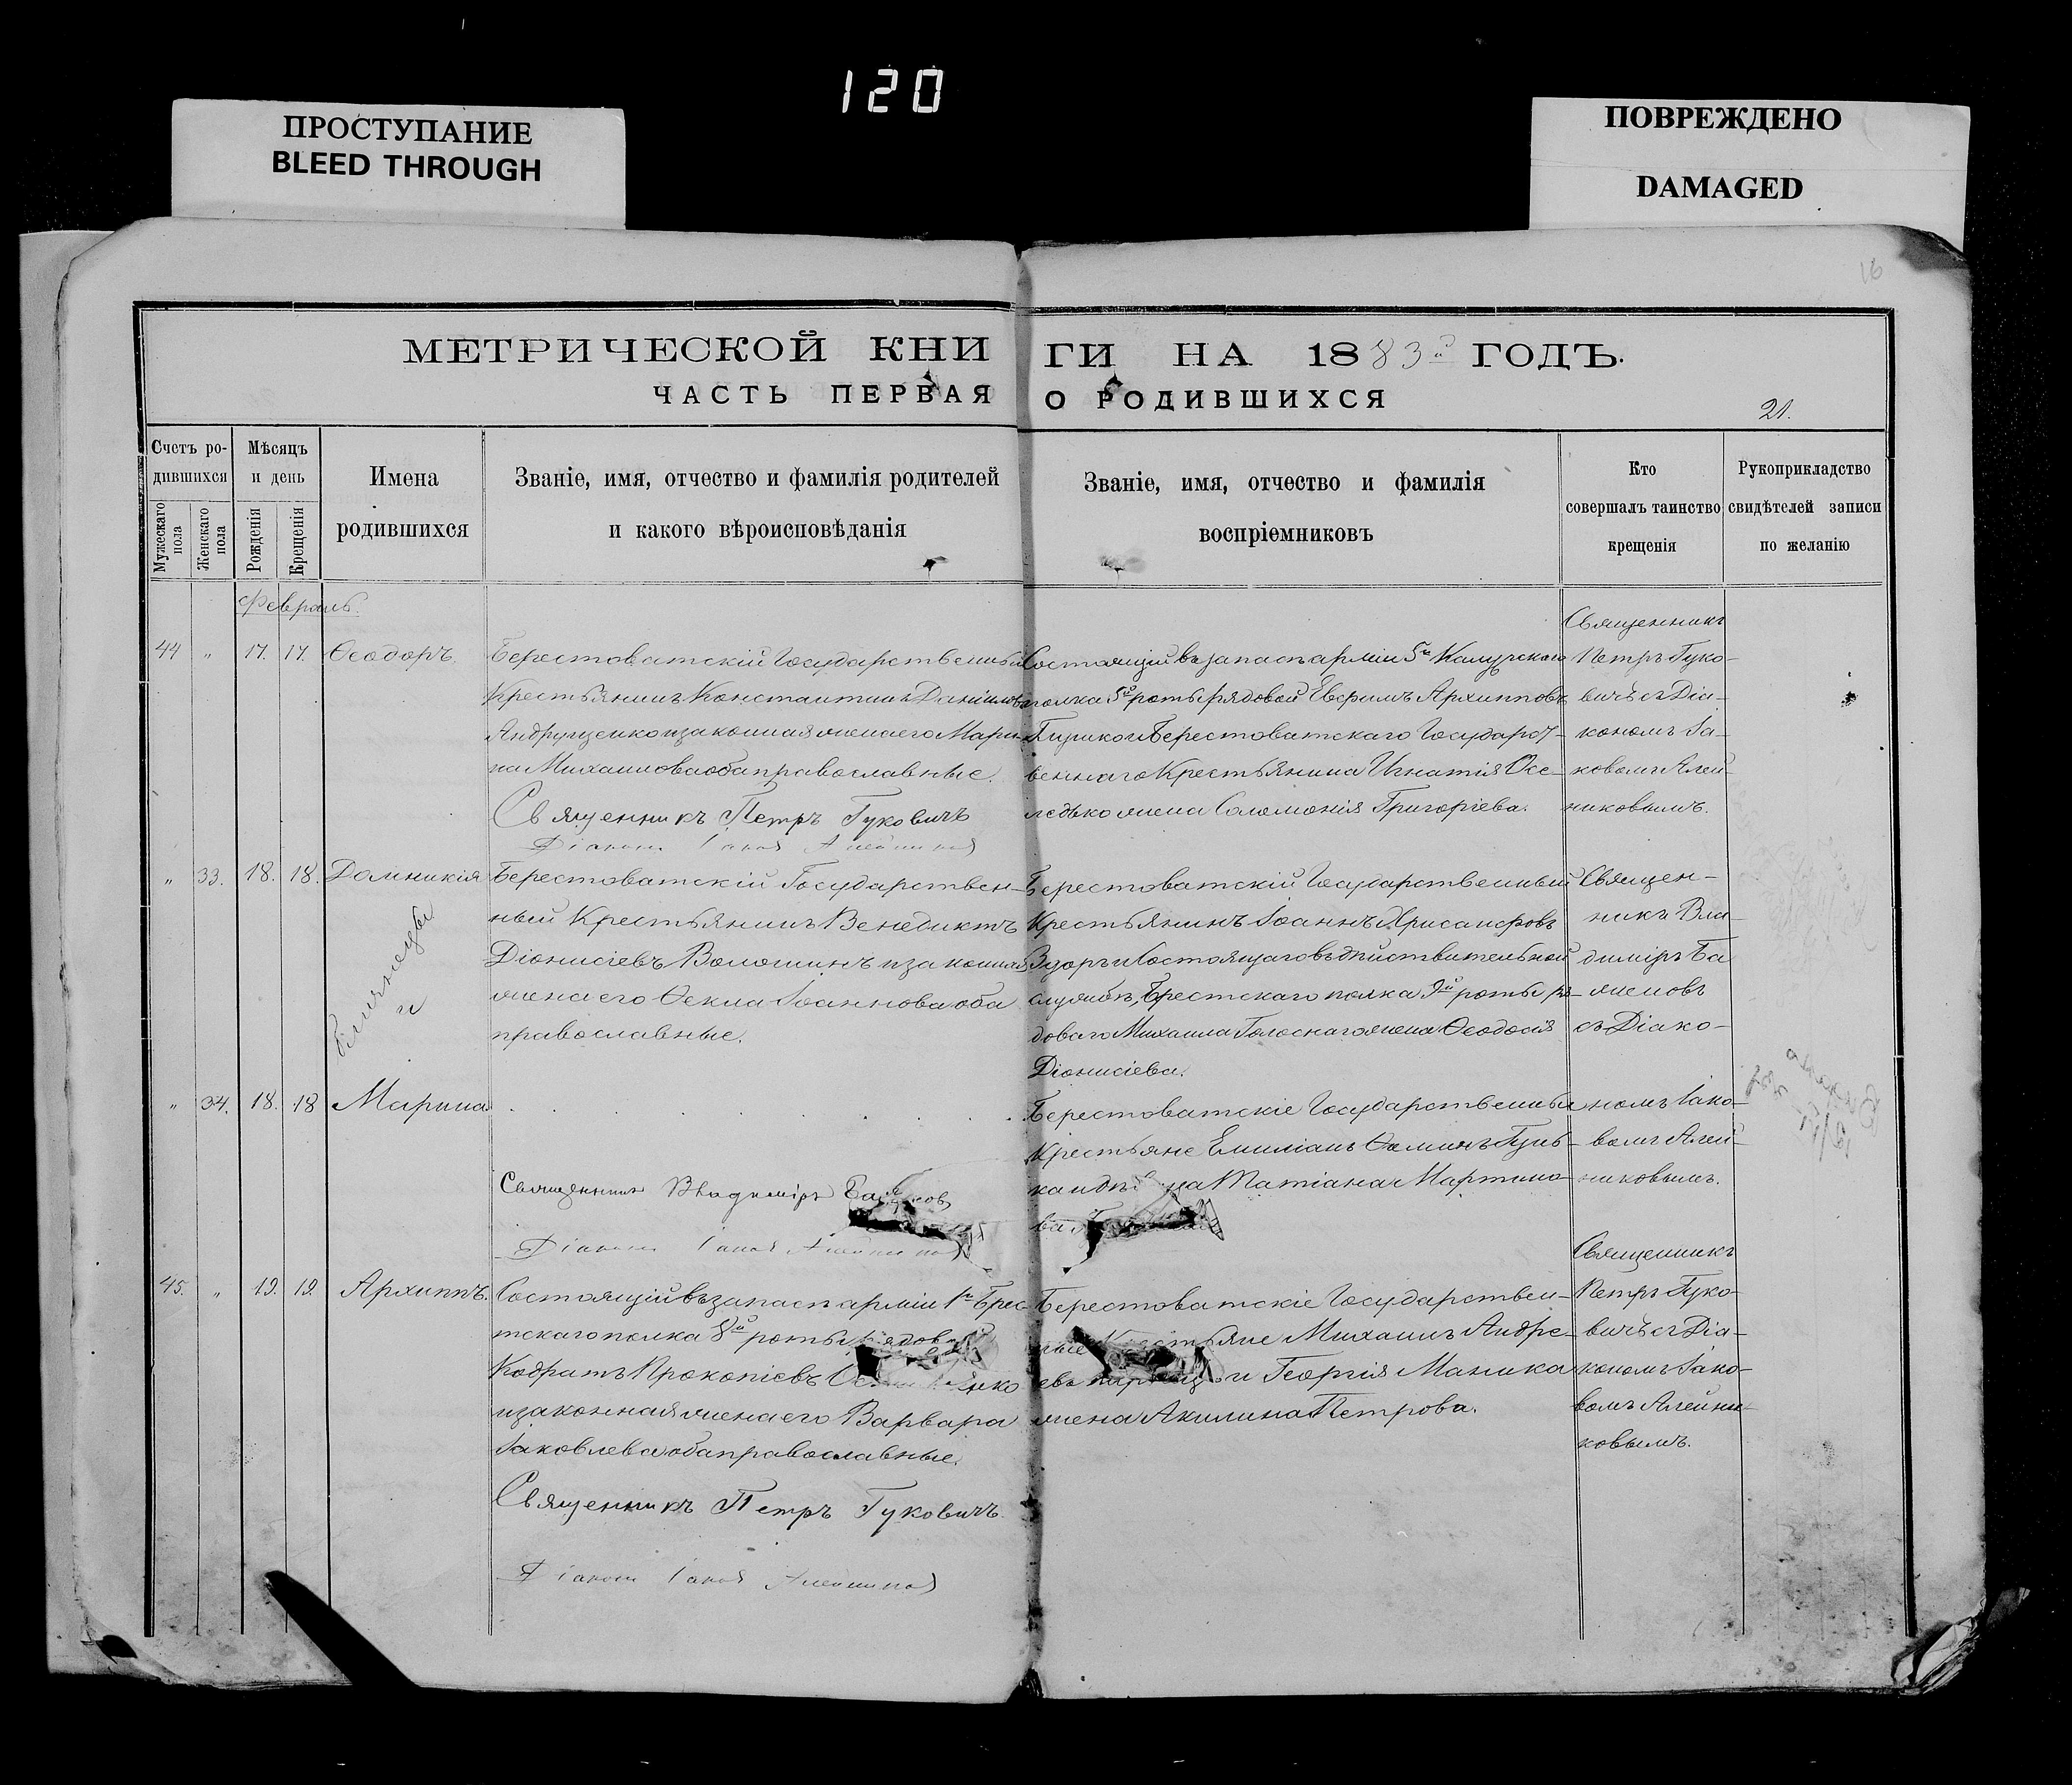 120
ПРОСТУПАНИЕ
BLEED THROUGH
ПОВРЕЖДЕНО
DAMAGED
16
МЕТРИЧЕСКОЙ КНИ ГИ НА 1883й ГОДЪ.
ЧАСТЬ ПЕРВАЯ О РОДИВШИХСЯ
21.
Счетъ ро-
дившихся
Мужескаго пола
Женскаго пола
Мѣсяцъ
и день
Рожденія
Крещенія
Имена
родившихся
Званіе, имя, отчество и фамилія родителей
и какого вѣроисповѣданія
Званіе, имя, отчество и фамилія
воспріемниковъ
Кто
совершалъ таинство
крещенія
Рукоприкладство
свидѣтелей записи
по желанію
Февраль.
44 " 17. 17. Ѳеодоръ.
Берестоватскій Государственный
Крестьянинъ Константинъ Даніиловъ
Андрущенко и законная жена его Мари-
на Михаилова оба православные.
Священникъ Петръ Гуковичъ
Діаконъ Іаковъ Алейниковъ
Состоящій въ запасѣ арміи 5го Калужскаго
полка 5й роты рядовой Евфимъ Архипповъ
и Берестоватскаго Государст-
веннаго Крестьянина Игнатія Осе-
ледько жена Соломонія Григоріева.
Священникъ
Петръ Гуко-
вичъ съ Діа-
кономъ Іа-
ковомъ Алей-
никовымъ.
" 33. 18. 18. Домникія
Близнецы
и
Берестоватскій Государствен-
ный Крестьянинъ Венедиктъ
Діонисіевъ Волошинъ и законная
жена его Ѳекла Іоаннова оба
православные.
Берестоватскій Государственный
Крестьянинъ Іоаннъ Хрисанфовъ
Здоръ и Состоящаго въ дѣйствительной
службѣ, Брестскаго полка 9й роты ря-
доваго Михаила жена Ѳеодосія
Діонисіева.
Священ-
никъ Вла-
диміръ Ба-
женовъ
съ Діако-
" 34. 18. 18 Марина
Священникъ Владиміръ Баженовъ
Діаконъ Іаковъ Алейниковъ
Берестоватскіе Государственные
Крестьяне Емиліанъ Ѳоминъ
Татіана Мартино-
ва
номъ Іако-
вомъ Алей-
никовымъ.
45. " 19. 19. Архиппъ.
Состоящій въ запасѣ арміи 1й Брес-
тскаго полка 8й роты рядовой
Кодратъ Прокопіевъ
и законная жена его Варвара
Іаковлева оба православные.
Священникъ Петръ Гуковичъ
Діаконъ Іаковъ Алейниковъ
Берестоватскіе Государствен-
ные Крестьяне Михаилъ Андре-
евъ и Георгія Маника
жена Акилина Петрова.
Священникъ
Петръ Гуко-
вичъ съ Діа-
кономъ Іако-
вомъ Алейни-
ковымъ.